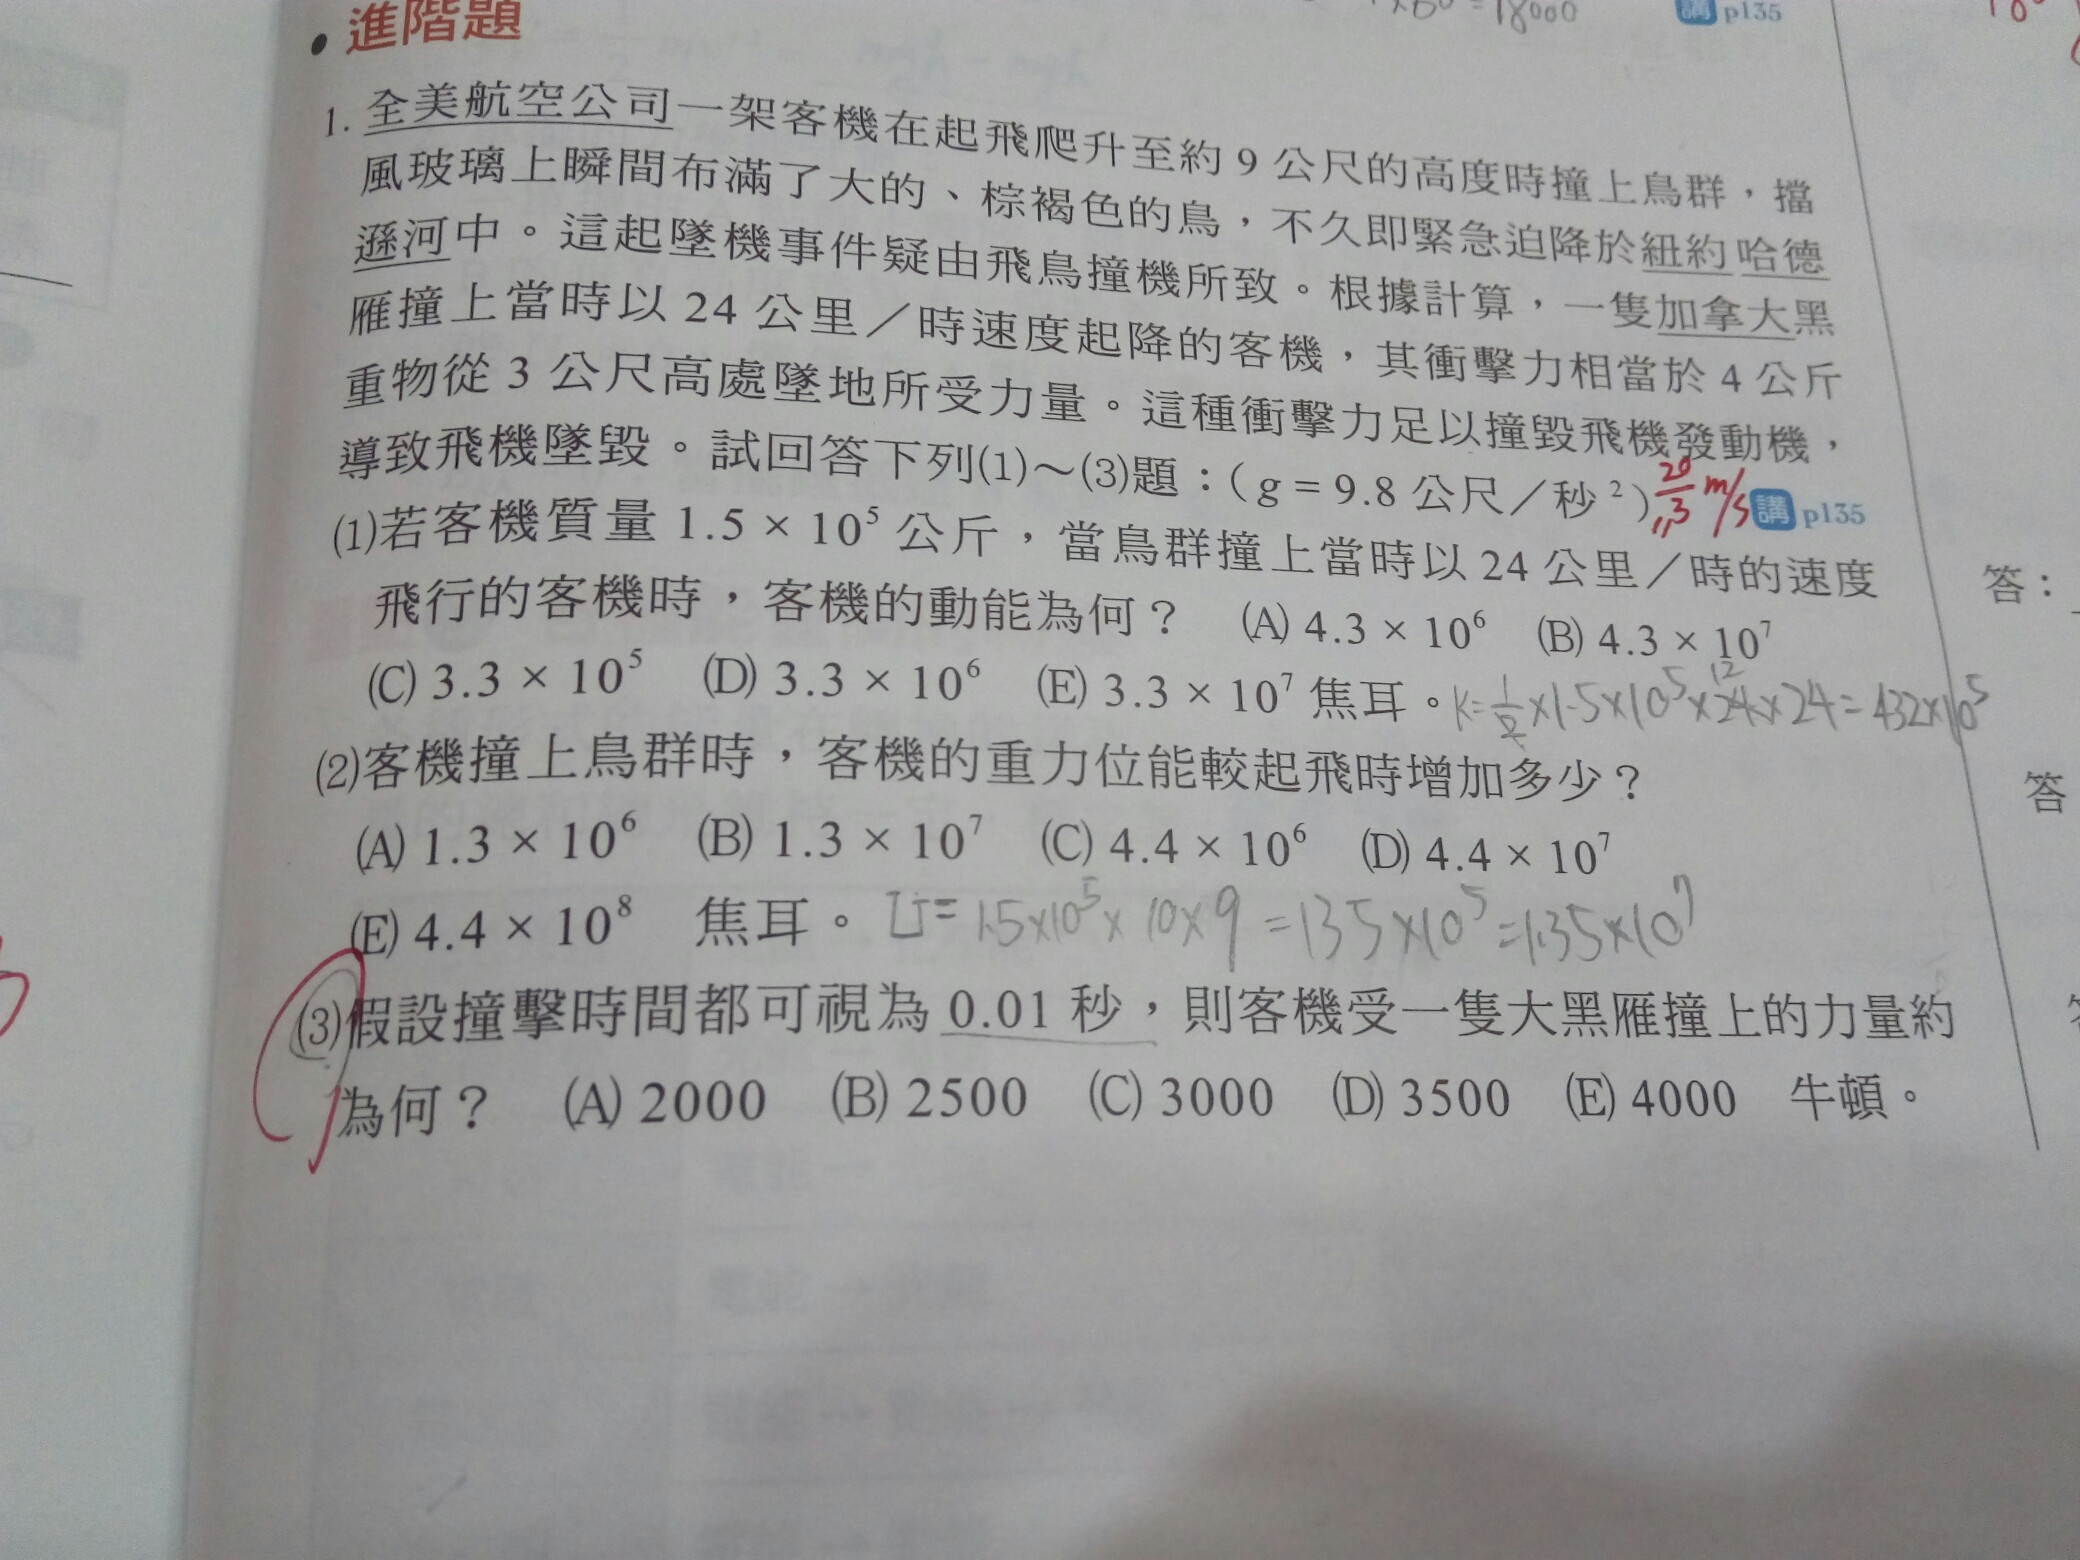 ×60=18000
講 p135
• 進階題
1. 全美航空公司一架客機在起飛爬升至約 9 公尺的高度時撞上鳥群，擋
風玻璃上瞬間布滿了大的、棕褐色的鳥，不久即緊急迫降於紐約哈德
遜河中。這起墜機事件疑由飛鳥撞機所致。根據計算，一隻加拿大黑
雁撞上當時以 24 公里／時速度起降的客機，其衝擊力相當於 4 公斤
重物從 3 公尺高處墜地所受力量。這種衝擊力足以撞毀飛機發動機，
導致飛機墜毀。試回答下列⑴～⑶題：( g = 9.8 公尺／秒²)
20/3 m/s
講 p135
⑴若客機質量 1.5 × 10⁵ 公斤，當鳥群撞上當時以 24 公里／時的速度
飛行的客機時，客機的動能為何？ (A) 4.3 × 10⁶ (B) 4.3 × 10⁷
(C) 3.3 × 10⁵ (D) 3.3 × 10⁶ (E) 3.3 × 10⁷ 焦耳。
K=1/2×1.5×10⁵×24×24=432×10⁵
12
⑵客機撞上鳥群時，客機的重力位能較起飛時增加多少？
(A) 1.3 × 10⁶ (B) 1.3 × 10⁷ (C) 4.4 × 10⁶ (D) 4.4 × 10⁷
(E) 4.4 × 10⁸ 焦耳。 U=1.5×10⁵×10×9=135×10⁵=1.35×10⁷
⑶假設撞擊時間都可視為 0.01 秒，則客機受一隻大黑雁撞上的力量約
為何？ (A) 2000 (B) 2500 (C) 3000 (D) 3500 (E) 4000 牛頓。
答：
答